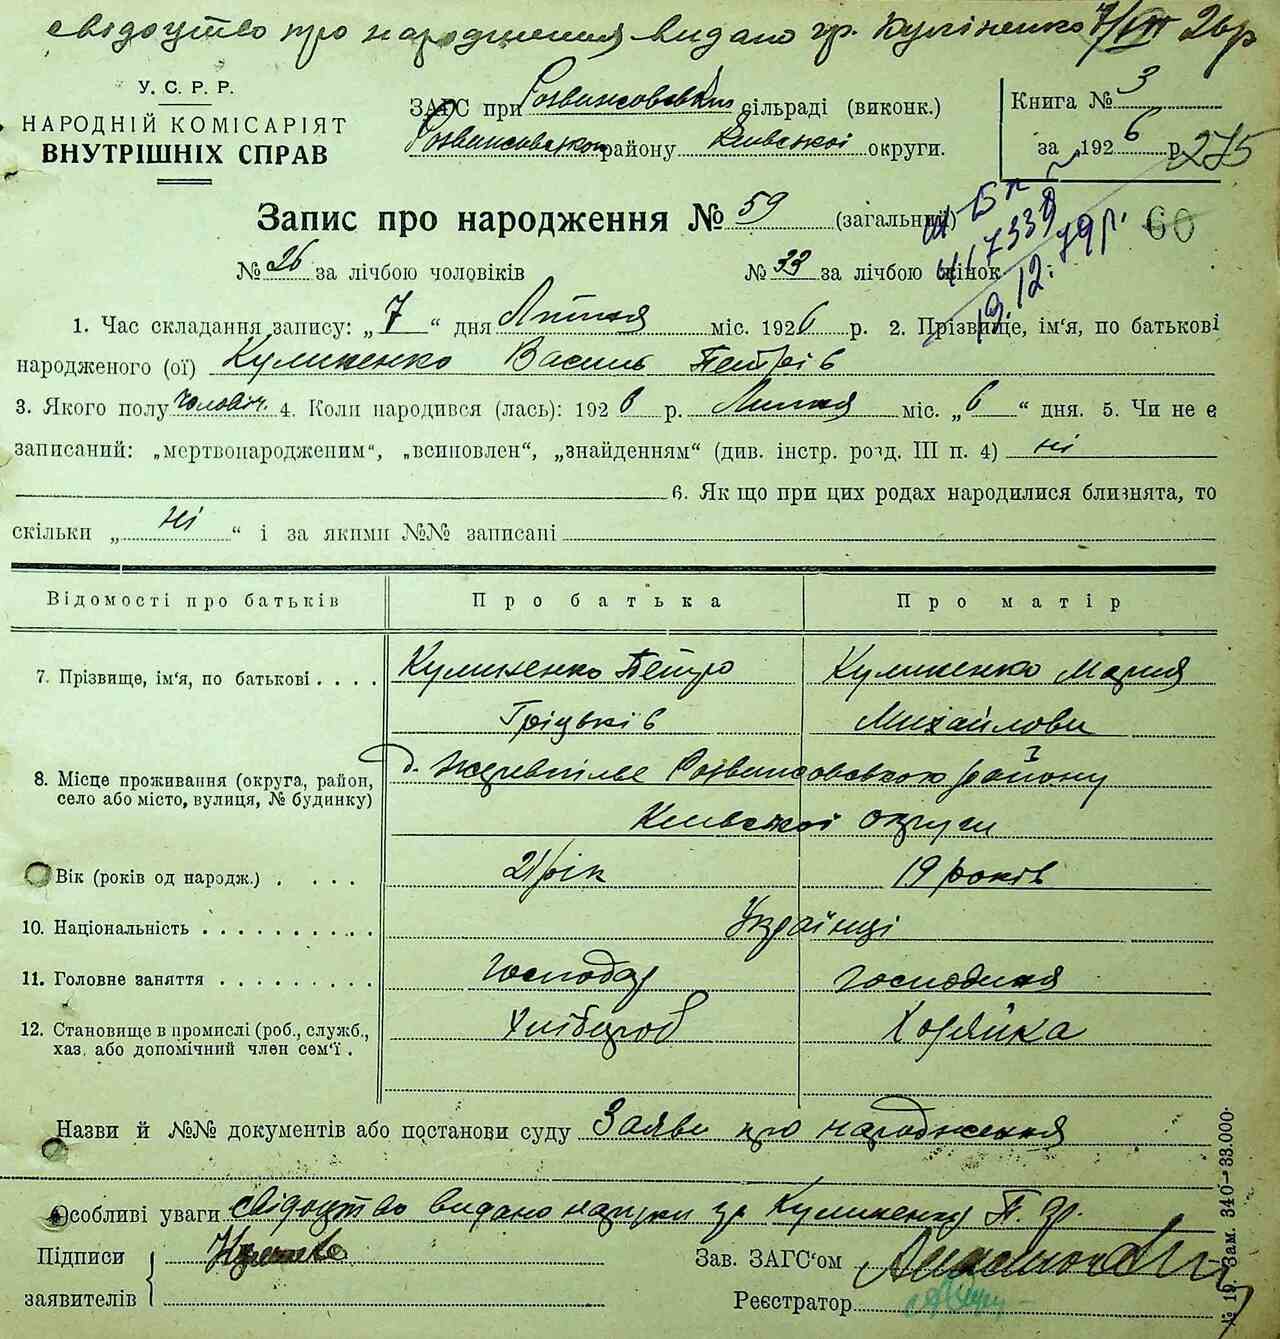 свідоцтво про народження видано гр. Куліненко 7/VII 26р
У. С. Р. Р.
НАРОДНІЙ КОМІСАРІЯТ
ВНУТРІШНІХ СПРАВ
ЗАГС при Розважовській сільраді (виконк.)
Розважовському району Київської округи.
Книга № 3
за 1926 р.
275
Запис про народження № 59 (загальний)
60
417339
19.12.79р.
№ 26 за лічбою чоловіків № 33 за лічбою жінок
1. Час складання запису: „7“ дня Липня міс. 1926 р. 2. Прізвище, ім‘я, по батькові
народженого (ої) Кулиненко Василь Петрів
3. Якого полу чоловіч. 4. Коли народився (лась): 1926 р. Липня міс. „6“ дня. 5. Чи не є
записаний: „мертвонародженим“, „всиновлен“, „знайденням“ (див. інстр. розд. III п. 4) ні
6. Як що при цих родах народилися близнята, то
скільки „ні“ і за якими №№ записані
Відомості про батьків Про батька Про матір
7. Прізвище, ім‘я, по батькові Кулиненко Петро Кулиненко Мария
Гріцьків Михайлови
8. Місце проживання (округа, район,
село або місто, вулиця, № будинку)
Розважовськой району
Київської округи
Вік (років од народж.) 21 рік 19 років
10. Національність Українці
11. Головне заняття господар господиня
12. Становище в промислі (роб., служб.,
хаз. або допомічний член сем‘ї. Хлібороб Хозяйка
Назви й №№ документів або постанови суду Заява про народження
Особливі уваги свідоцтво видано на руки гр Кулиненку П. Гр.
Підписи
заявителів
Зав. ЗАГС‘ом
Реєстратор
№ 19. Зам. 340—33.000.